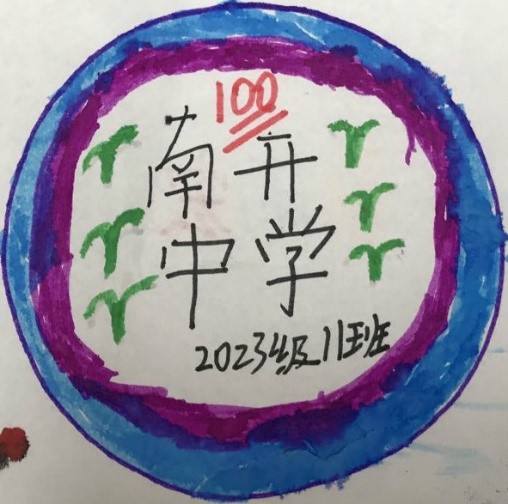 100
南开
中学
2023级11班